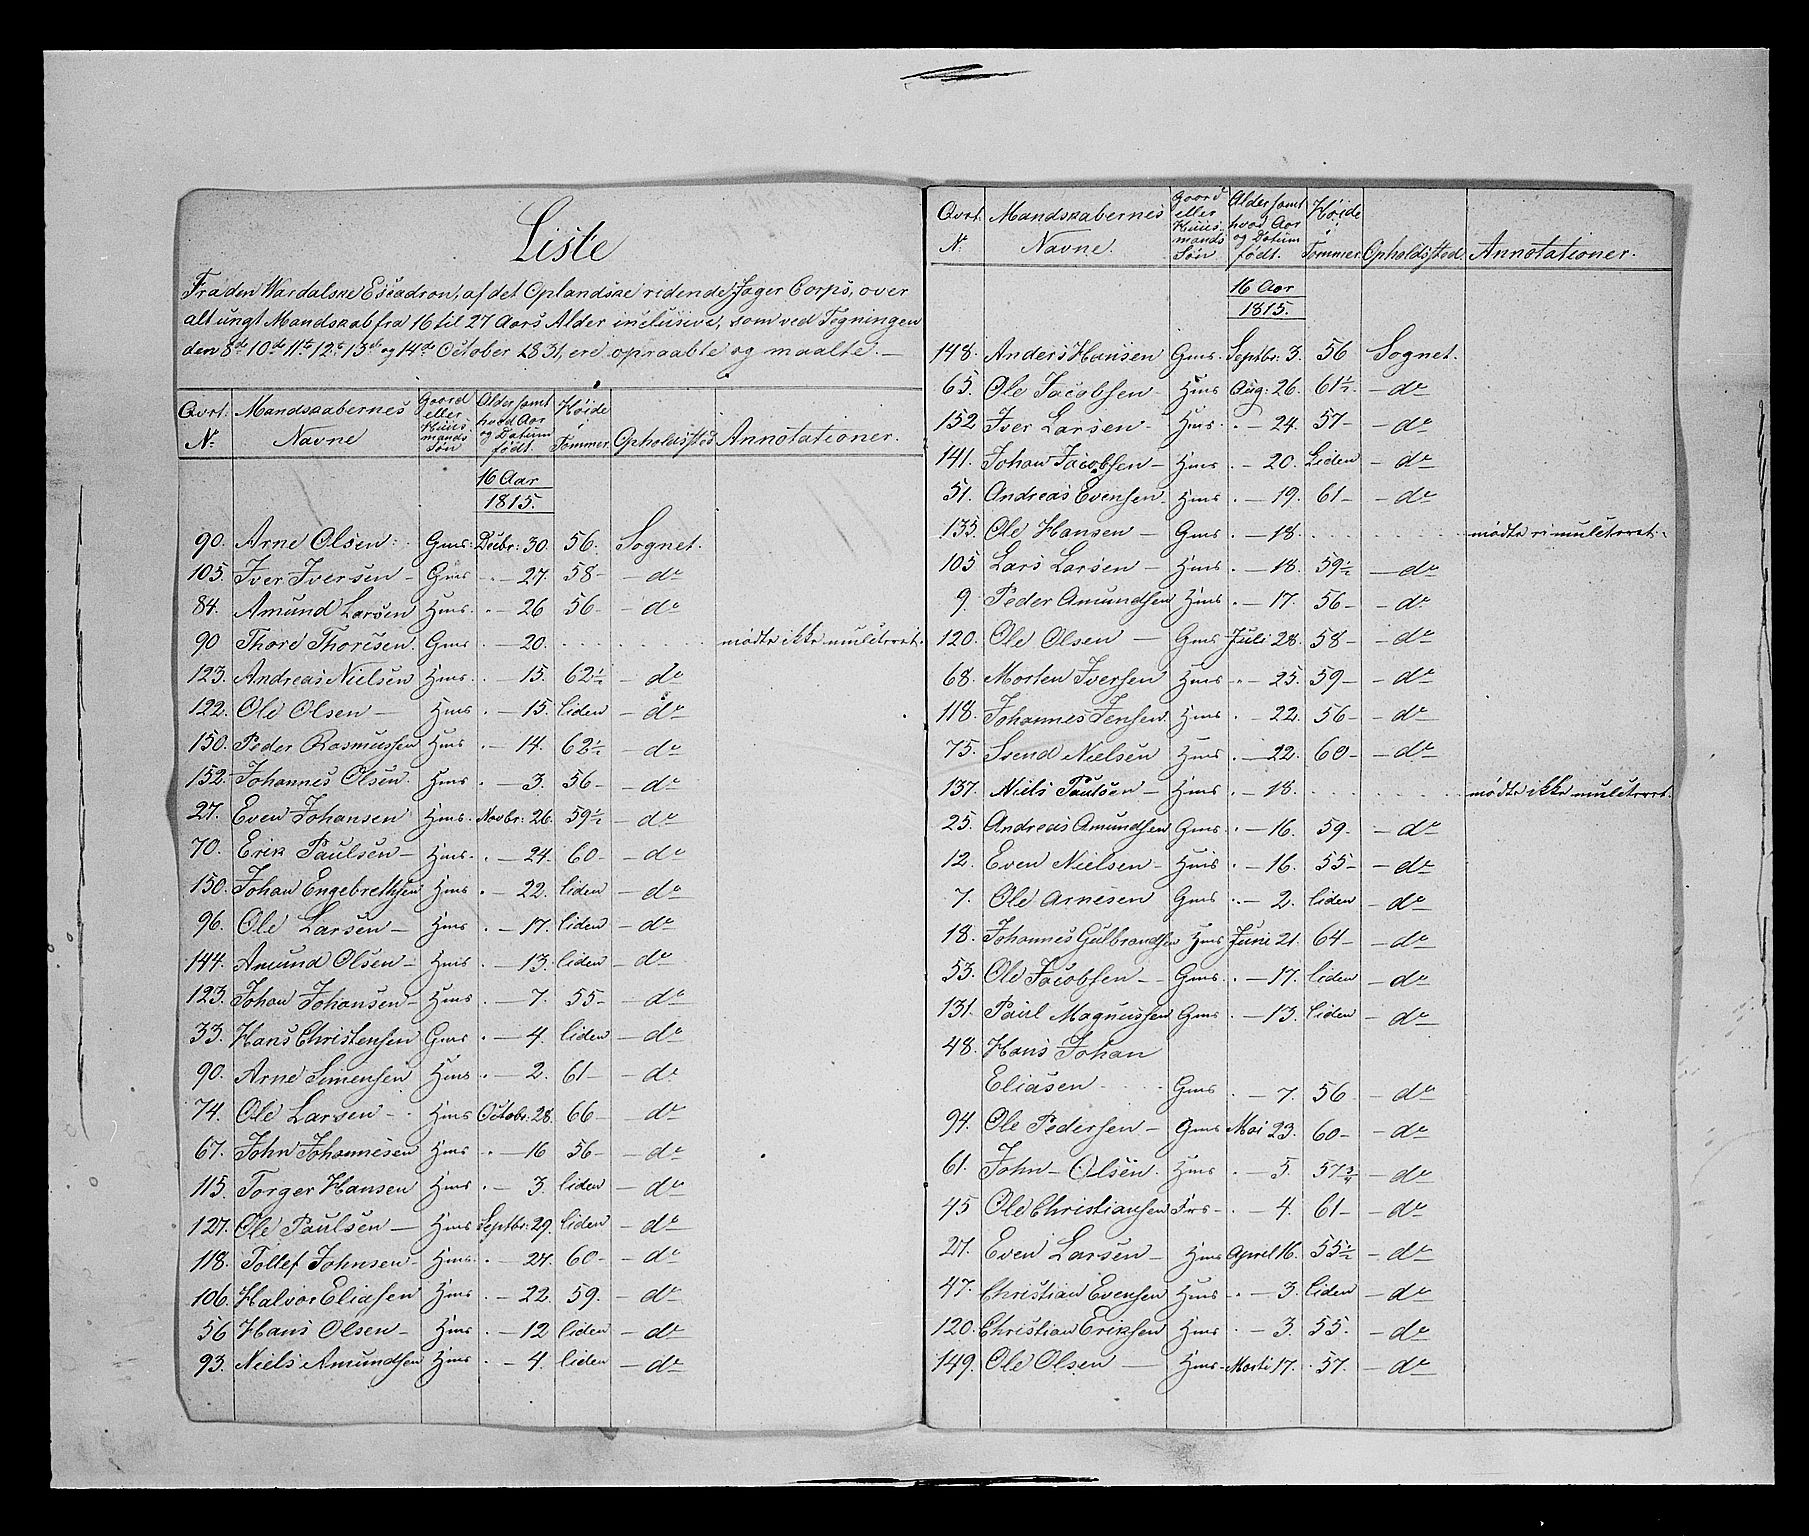 Liste
Fra den Wardalske Escadron, af det Oplandske ridende Jæger Corps, over
alt ungt Mandskab fra 16 til 27 Aars Alder inclusive, som ved Tegningen
den 8de 10de 11te 12te 13de og 14de October 1831, ere opraabte og maalte. —
Qvrt. No. Mandskabernes Navne Gaard eller Huusmands Søn Alder samt hvad Aar og Datum født. Høide i Tommer. Opholdssted Annotationer.
16 Aar
1815.
90. Arne Olsen. Gms. Decbr: 30. 56. Sognet.
105. Iver Iversen — Gms " — 27. 58 — — do
84. Amund Larsen Hms. " — 26 56 — — do
90 Thore Thoresen. Gms — 20. mødte ikke mulcteret.
123. Andreas Nielsen Hms. " — 15. 62½ — do
122. Ole Olsen — Hms. " — 15. liden — do
150. Peder Rasmussen Hms " — 14. 62½ — do
152. Johannes Olsen. Hms " — 3. 56 — — do
27. Even Johansen Hms. Novbr: 26. 59½ — do
70. Erik Paulsen — Hms. " — 24. 60 — — do
150. Johan Engebrethsen Hms " — 22. liden — do
96. Ole Larsen — Hms " — 17. liden — do
144. Amund Olsen — Hms " — 13. liden — do
123. Johan Johansen — Hms " — 7. 55 — — do
33. Hans Christensen Gms " — 4. liden — do
90. Arne Simensen Hms " — 2. 61 — — do
74. Ole Larsen — Hms Octobr: 28. 66 — — do
67. John Johannesen Hms " — 16 56 — — do
115. Torger Hansen Hms " — 3. liden — do
127. Ole Paulsen — Hms Septbr: 29. liden — do
118. Tollef Johnsen — Hms. " — 27. 60 — — do
106. Halvor Eliasen Hms " — 22. 59. — do
56 Hans Olsen — Hms " — 12 liden — do
93. Niels Amundsen Hms " — 4. liden — do
Qvrt. No. Mandskabernes Navne. Gaard eller Huusmands Søn Alder samt hvad Aar og Datum født. Høide i Tommer. Opholdssted Annotationer.
16 Aar
1815.
148. Anders Hansen Gms. Septbr: 3. 56 Sognet.
65. Ole Jacobsen — Hms Aug: 26. 61½ — do
152 Iver Larsen — Hms. " — 24. 57 — — do
141. Johan Jacobsen — Hms " — 20. Liden — do
51. Andreas Evensen Hms " — 19. 61 — — do
135. Ole Hansen — Gms " — 18. mødte ei mulcteret.
105 Lars Larsen — Hms " — 18. 59½ — do
9. Peder Amundsen Hms " — 17. 56 — — do
120. Ole Olsen — Gms Juli 28. 58 — — do
68. Morten Iversen Hms " — 25. 59 — — do
118. Johannes Jensen. Hms " — 22. 56 — — do
75. Svend Nielsen Hms " — 22. 60 — — do
137. Niels Paulsen — Hms " — 18. mødte ikke mulcteret.
25. Andreas Amundsen Gms. " — 16. 59. — do
12. Even Nielsen — Hms " — 16. 55 — — do
7. Ole Arnesen Gms " — 2. liden — do
18. Johannes Gulbrandsen Hms Juni 21. 64 — — do
53. Ole Jacobsen — Gms. " — 17. liden — do
131. Paul Magnussen Gms. " — 13. liden — do
48. Hans Johan
Eliasen Gms " — 7. 56 — do
94. Ole Pedersen — Gms Mai 23. 60 — — do
61. John — Olsen. Hms " — 5. 57¾ — do
45 Ole Christiansen " — 4. 61 — — do
27. Even Larsen — Hms April 16. 55½ — do
47. Christian Evensen Hms " — 3. liden — do
120. Christian Eriksen Hms " — 3. 55. — do
149. Ole Olsen — Hms — Marti 17. 57. — do